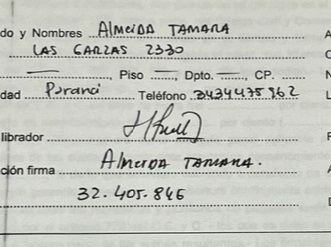 do y Nombres ALMEIDA TAMARA A
LAS GARZAS 2330
Piso Dpto. CP. N
dad Paraná Teléfono 3434475862 L
librador F
ción firma ALMEIDA TAMARA. A
32.405.846